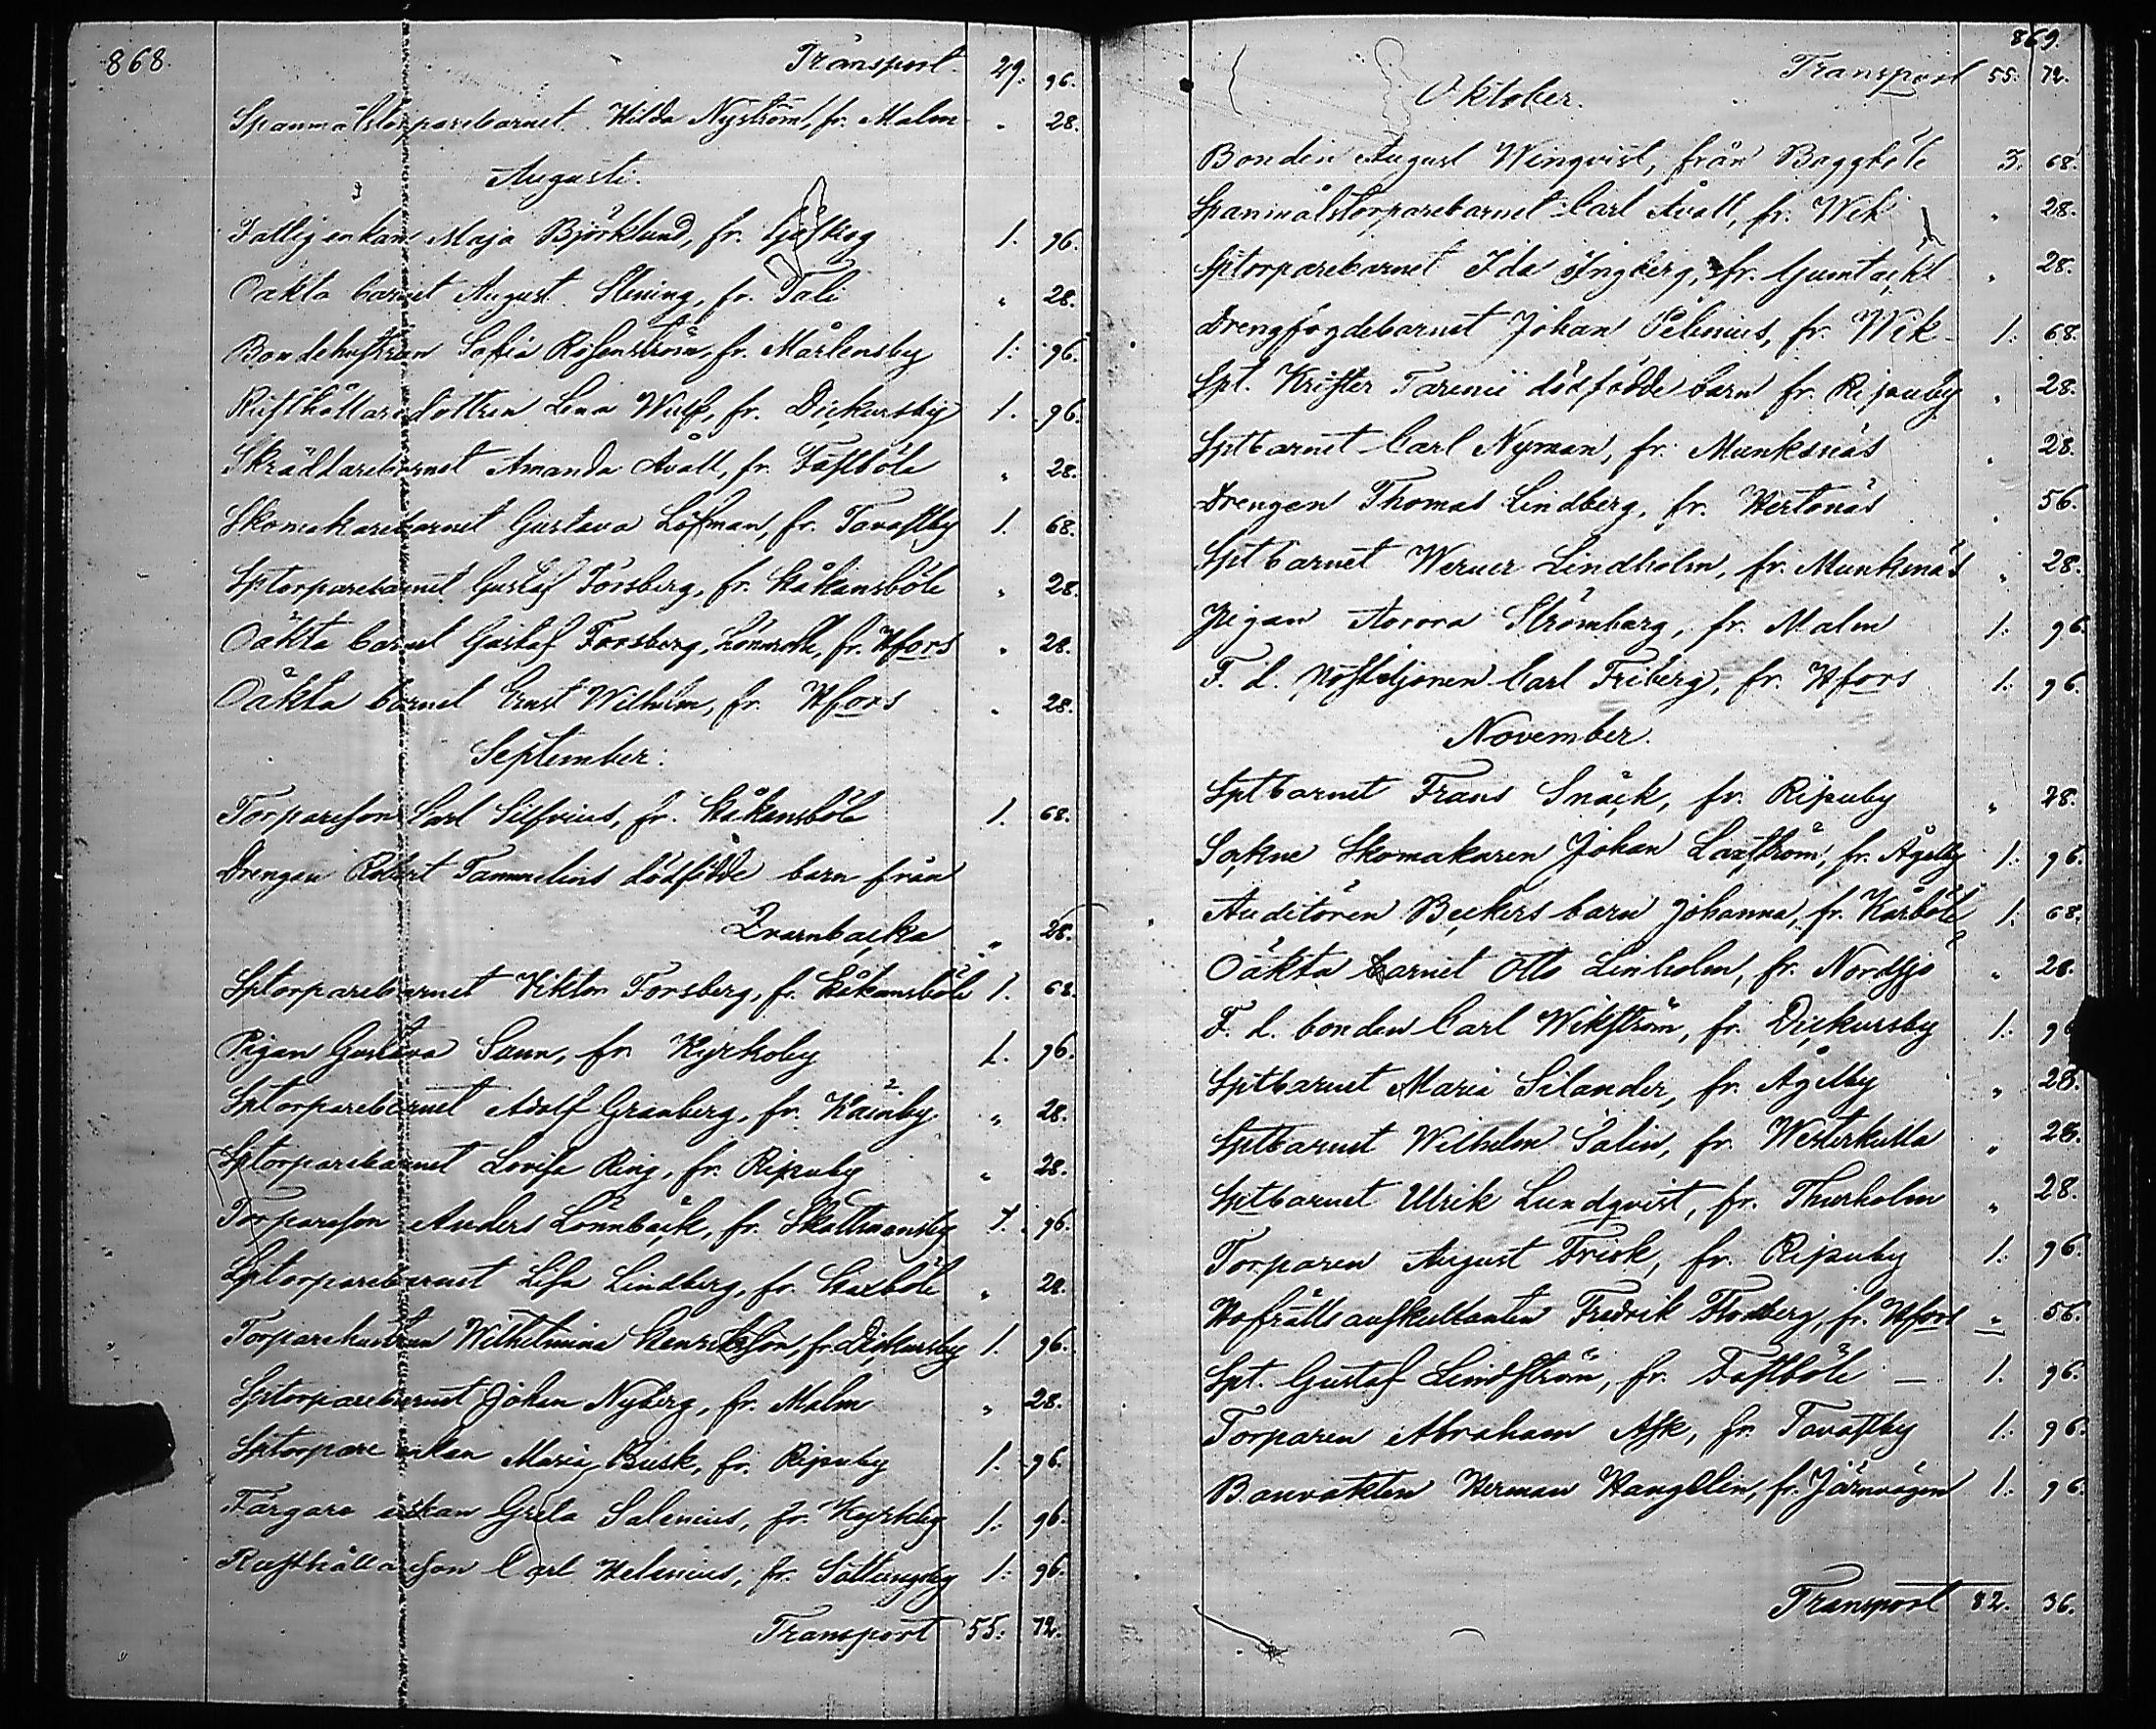 868.
Transport 29: 96.
Spanmålstorparebarnet Hilda Nyström, fr. Malm „ 28.
Augusti.
Fattigenkan Maja Björklund, fr. 1. 96.
Oäkta barnet August Slening, fr. Tali „ 28.
Bondehustrun Sofia Rosenström, fr. Mårtensby 1. 96.
Rusthållaredottren Lena Wulf, fr. Dickursby 1. 96.
Skräddarebarnet Amanda Åvall, fr. Fastböle „ 28.
Skomakarebarnet Gustava Löfman, fr. Tavastby 1. 68.
Sptorparebarnet Gustaf Forsberg, fr. Håkansböle „ 28.
Oäkta barnet Gustaf Forsberg, Lönnroth, fr. Hfors „ 28.
Oäkta barnet Ernst Wilhelm, fr. Hfors „ 28.
September.
Torpareson Carl Silfvius, fr. Håkansböle 1. 68.
Drengen Robert Tammelins dödfödde barn från
Qvarnbacka „ 28.
Sptorparebarnet Viktor Forsberg, fr. Håkansböle 1. 68.
Pigan Gustava Sun, fr. Kyrkoby 1. 96.
Sptorparebarnet Adolf Granberg, fr. Kåinby „ 28.
Sptorparebarnet Lovisa Ring, fr. Ripuby „ 28.
Torpareson Anders Lönnbäck, fr. Skattmansby 1. 96.
Sptorparebarnet Lisa Lindberg, fr. Haxböle „ 28.
Torparehustrun Wilhelmina Henriksson, fr. Dickursby 1. 96.
Sptorparebarnet Johan Nyberg, fr. Malm „ 28.
Sptorpare enkan Maria Busk, fr. Ripuby 1. 96.
Färgare enkan Greta Salenius, fr. Kyrkby 1. 96.
Rusthållareson Carl Helenius, fr. Sottungsby 1. 96.
Transport 55: 72.
869.
Transport 55: 72.
Oktober.
Bonden August Winqvist, från Baggböle 3. 68.
Spanmålstorparebarnet Carl Åvall, fr. Wik „ 28.
Sptorparebarnet Ida Engberg, fr. Gumtäckt „ 28.
Drengfogdebarnet Johan Selenius, fr. Wik 1. 68.
Spt. Krister Tarenii dödfödde barn fr. Ripuby „ 28.
Sptbarnet Carl Nyman, fr. Munksnäs „ 28.
Drengen Thomas Lindberg, fr. Hertonäs „ 56.
Sptbarnet Werner Lindholm, fr. Munksnäs „ 28.
Pigan Aorora Strömberg, fr. Malm 1. 96.
F. d. Postiljonen Carl Friberg, fr. Hfors 1. 96.
November.
Sptbarnet Frans Snäck, fr. Ripuby „ 28.
Sockne Skomakaren Johan Laxström, fr. Ågelby 1. 96.
Auditören Beckers barn Johanna, fr. Kårböle 1: 68.
Oäkta barnet Otto Linholm, fr. Nordsjö „ 28.
F. d. bonden Carl Wikström, fr. Dickursby 1. 96
Sptbarnet Maria Silander, fr. Ågelby „ 28.
Sptbarnet Wilhelm Salin, fr. Westerkulla „ 28.
Sptbarnet Ulrik Lundqvist, fr. Thurholm „ 28.
Torparen August Frisk, fr. Ripuby 1. 96.
Hofrättsauskultanten Fredrik Flodberg, fr. Hfors „ 56.
Spt. Gustaf Lindström, fr. Fastböle 1. 96.
Torparen Abraham Ask, fr. Tavastby 1. 96.
Banvakten Herman Hangelin, fr. Järnvägen 1. 96.
Transport 82. 36.